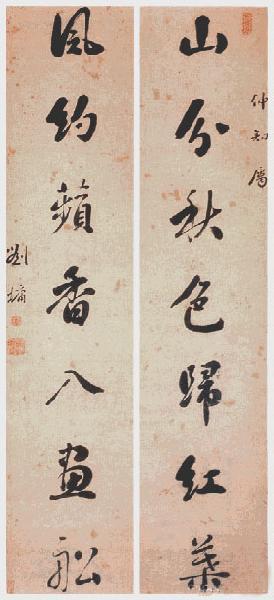 仲知屬
山分秋色歸紅葉
風約蘋香入畫船
劉墉